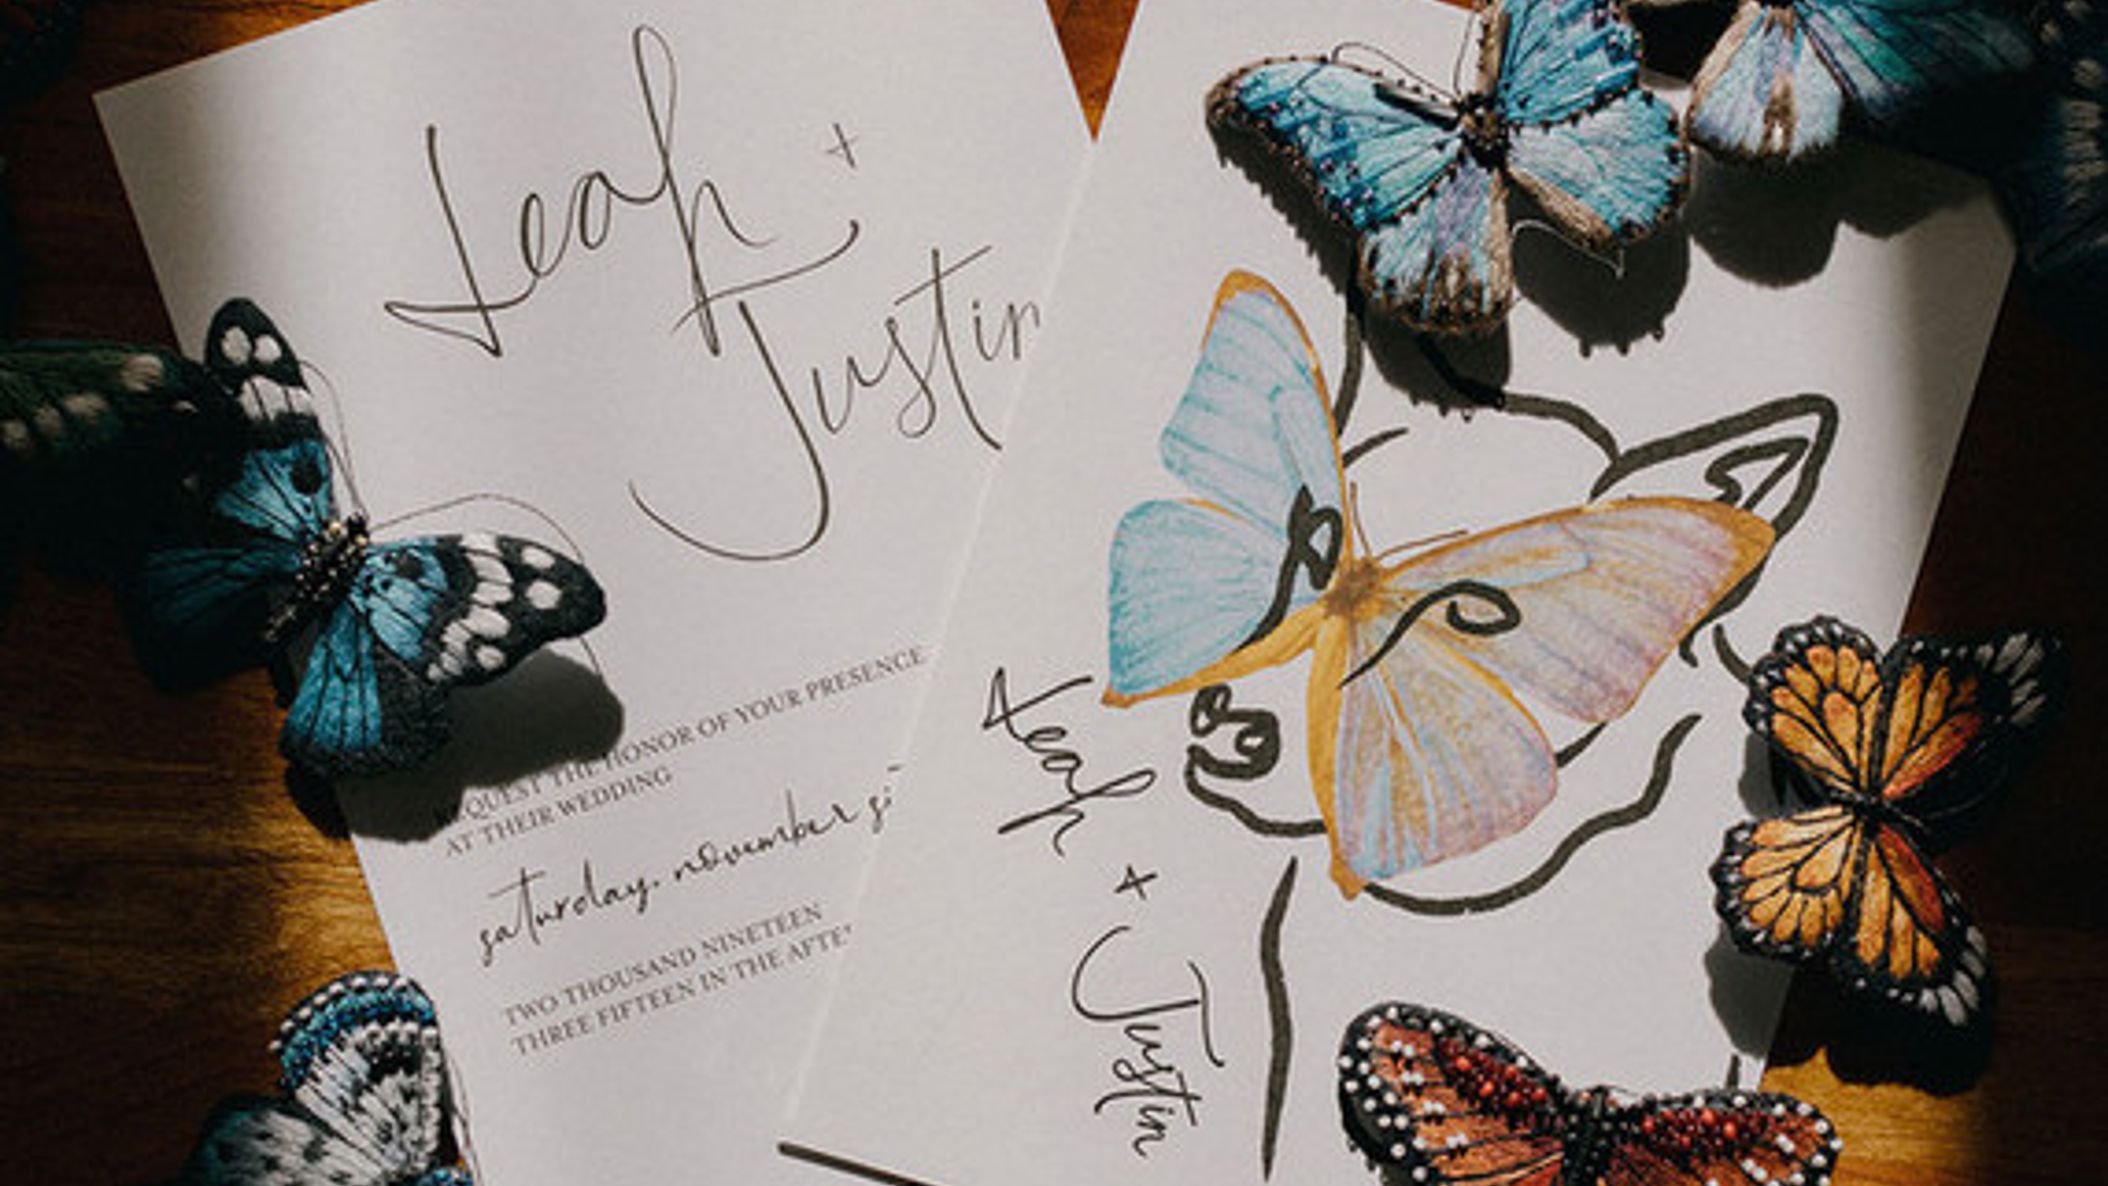 Leah +
Justin
REQUEST THE HONOR OF YOUR PRESENCE
AT THEIR WEDDING
saturday, november
TWO THOUSAND NINETEEN
THREE FIFTEEN IN THE
Leah + Justin